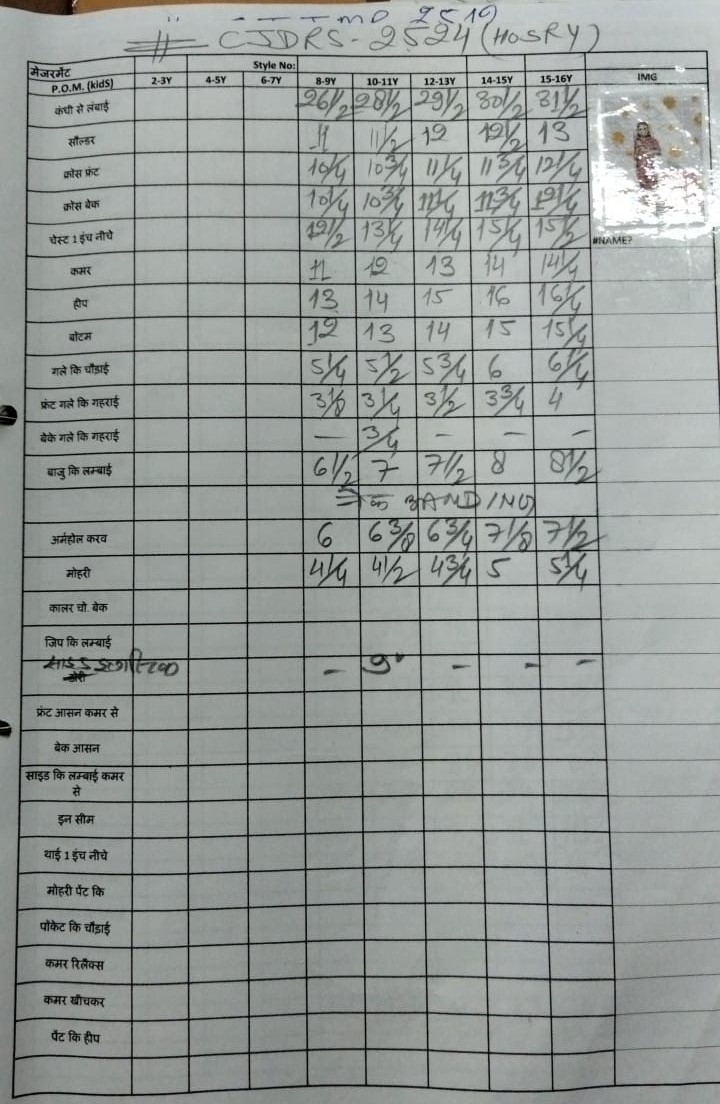 MD 2519
# CJDRS-2524 (HOSRY)
मेजरमेंट Style No:
P.O.M. (kidS) 2-3Y 4-5Y 6-7Y 8-9Y 10-11Y 12-13Y 14-15Y 15-16Y IMG
कंधी से लंबाई 26 1/2 28 1/2 29 1/2 30 1/2 31 1/2
सौल्डर 11 11 1/2 12 12 1/2 13
क्रोस फ्रंट 10 1/4 10 3/4 11 1/4 11 3/4 12 1/4
क्रोस बेक 10 1/4 10 3/4 11 1/4 11 3/4 12 1/4
चेस्ट 1 इंच नीचे 12 1/2 13 1/4 14 1/4 15 1/4 15 1/2 #NAME?
कमर 11 12 13 14 14 1/4
हीप 13 14 15 16 16 1/4
बोटम 12 13 14 15 15 1/4
गले कि चौड़ाई 5 1/4 5 1/2 5 3/4 6 6 1/4
फ्रंट गले कि गहराई 3 1/8 3 1/4 3 1/2 3 3/4 4
बेके गले कि गहराई — 3/4 - - -
बाजु कि लम्बाई 6 1/2 7 7 1/2 8 8 1/2
अर्महोल करव 6 6 3/8 6 3/4 7 1/8 7 1/2
मोहरी 4 1/4 4 1/2 4 3/4 5 5 1/4
कालर चो. बेक
जिप कि लम्बाई
साइड - 9" - - -
डोरी
फ्रंट आसन कमर से
बेक आसन
साइड कि लम्बाई कमर
से
इन सीम
थाई 1 इंच नीचे
मोहरी पेंट कि
पॉकेट कि चौड़ाई
कमर रिलैक्स
कमर खीचकर
पेंट कि हीप